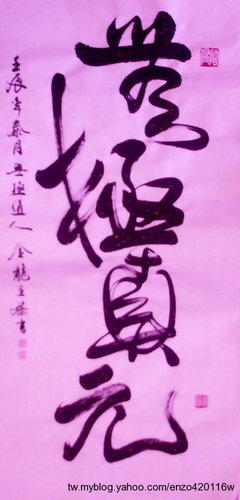 無極真元
壬辰年 月無極道人金龍 書
tw.myblog.yahoo.com/enzo420116w